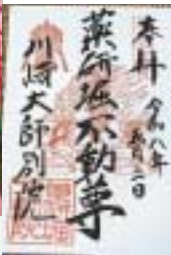 奉拝 令和八年一月二日
薬研堀不動尊
川崎大師別院